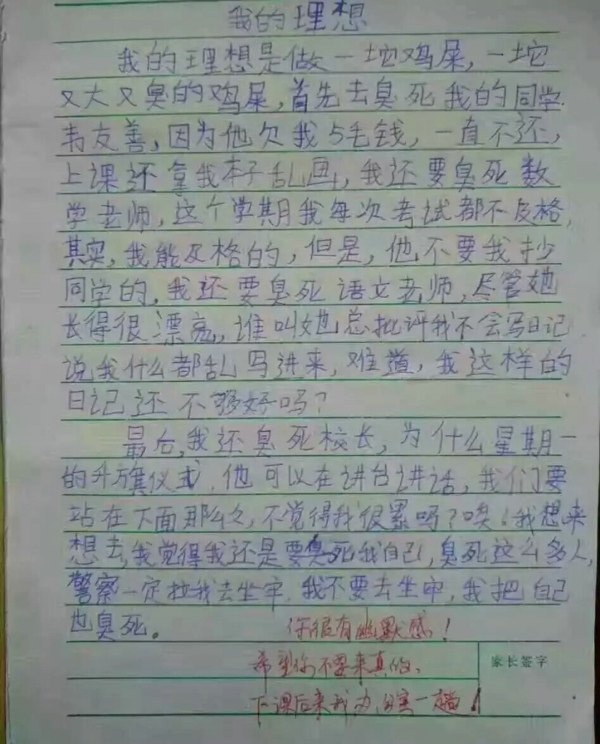 我的理想
我的理想是做一坨鸡屎，一坨
又大又臭的鸡屎，首先去臭死我的同学
韦友善，因为他欠我5毛钱，一直不还，
上课还拿我本子乱画，我还要臭死数
学老师，这个学期我每次考试都不及格，
其实，我能及格的，但是，他不要我抄
同学的，我还要臭死语文老师，尽管她
长得很漂亮，谁叫她总批评我不会写日记
说我什么都乱写进来，难道，我这样的
日记还不够好吗？
最后，我还臭死校长，为什么星期一
的升旗仪式，他可以在讲台讲话，我们要
站在下面那么久，不觉得我很累吗？唉！我想来
想去，我觉得我还是要臭死我自己，臭死这么多人，
警察一定拉我去坐牢，我不要去坐牢，我把自己
也臭死。
你很有幽默感！
希望你不要来真的、
家长签字
下课后来我办公室一趟！